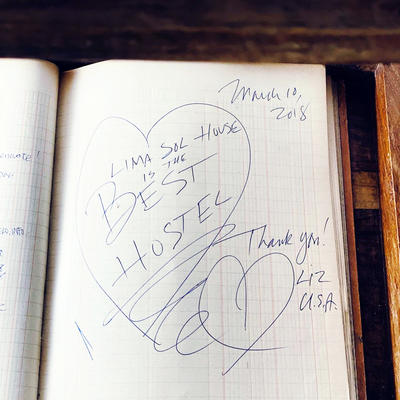 March 10,
2018
LIMA SOL HOUSE
IS THE
BEST
HOSTEL
Thank you!
LIZ
U.S.A.